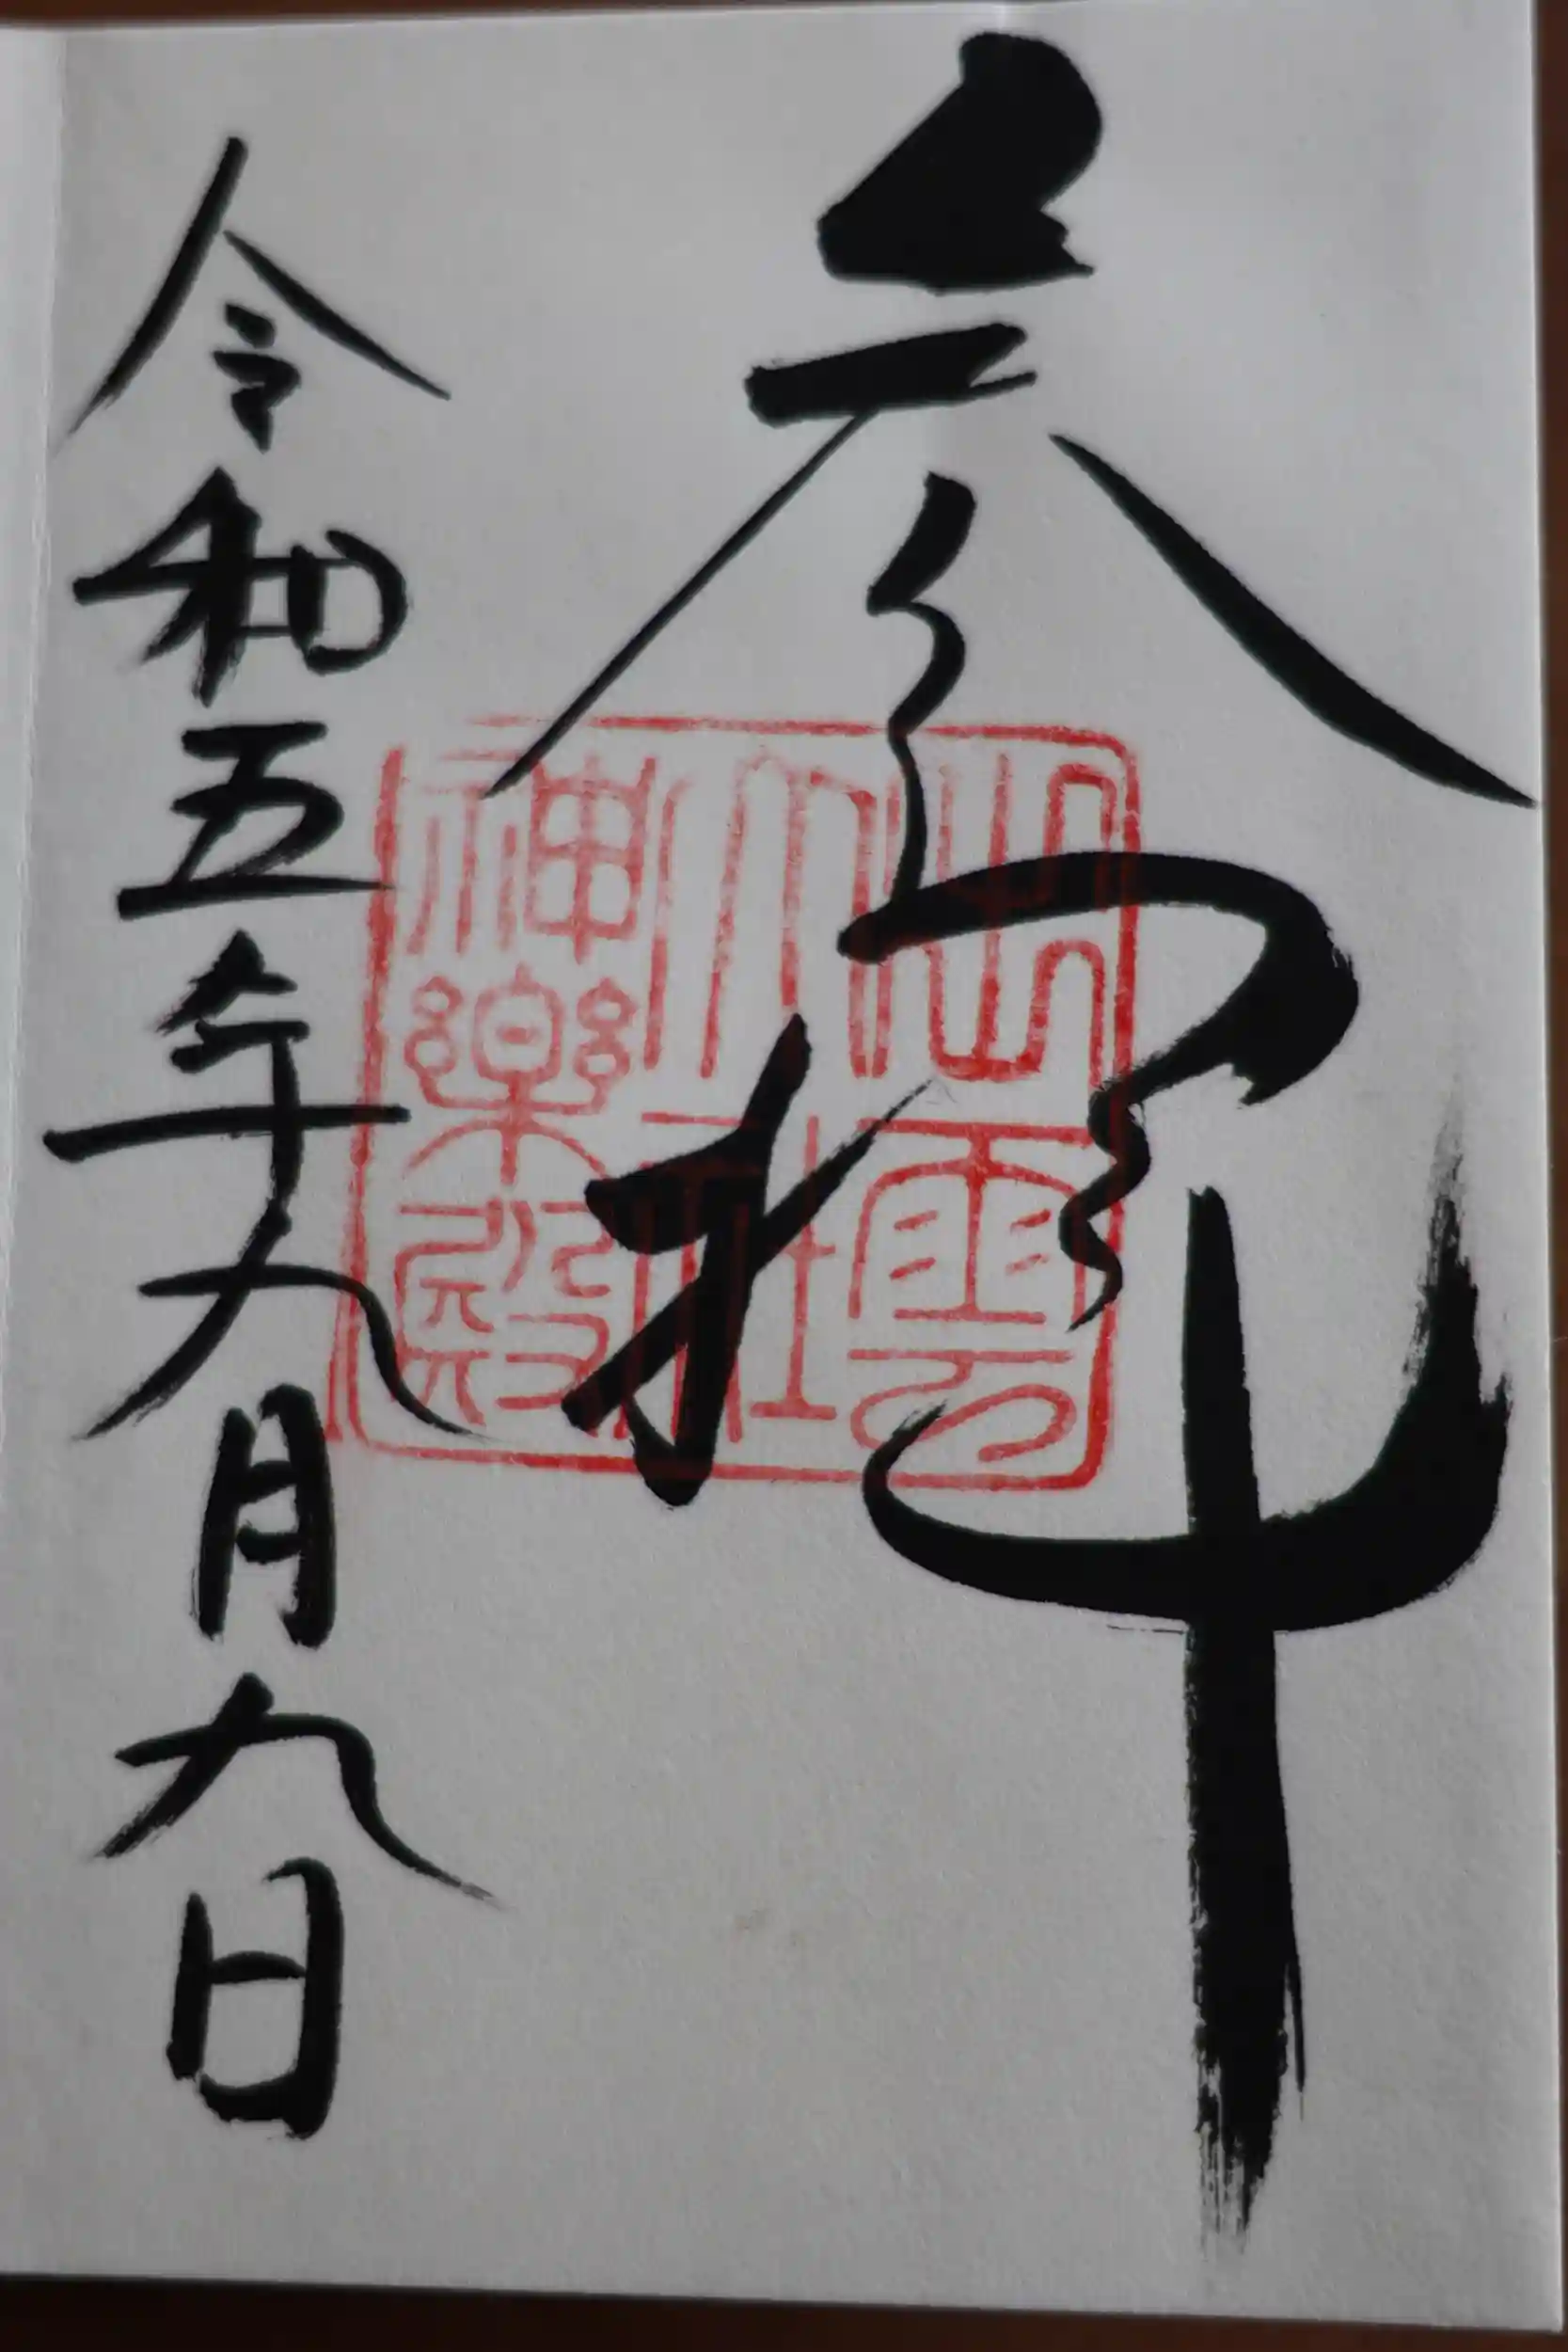 参拝
令和五年九月九日
出雲
大社
神楽殿